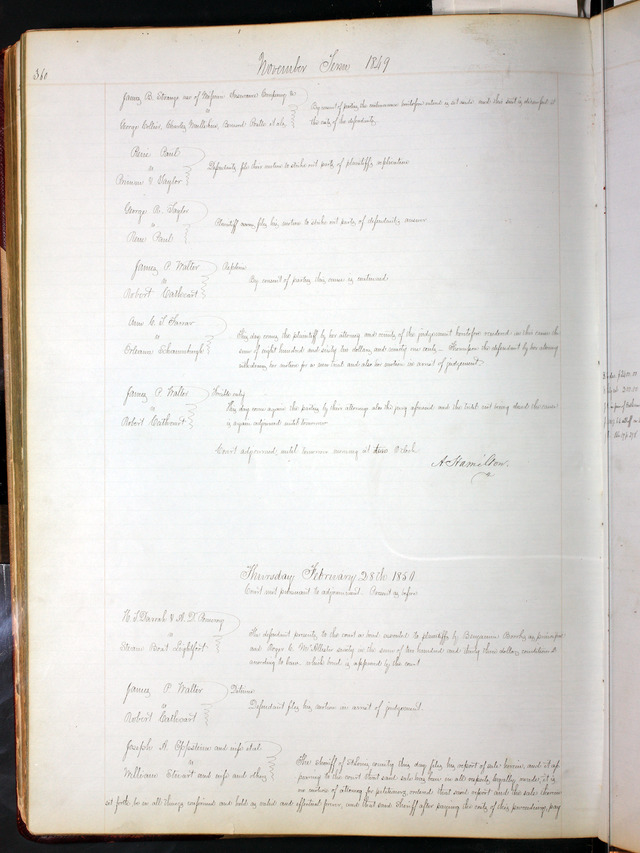 360
November Term 1849
James B. Strange use of Insurance Company vs
George Collier, Charles Mullikin, et als
By consent of parties the and this suit is dismissed at
the costs of the defendants
Rene Paul
vs
& Taylor
Defendants file their motion to strike out parts of plaintiffs replication
George R. Taylor
vs
Rene Paul
Plaintiff files his motion to strike out parts of defendants answer
James P. Walter
vs
Robert Cathcart
Replevin
By consent of parties this cause is continued
Ann C. T. Farrar
vs
Orleana Shaumburgh
This day comes the plaintiff by her attorney and of the judgement heretofore rendered in this cause the
sum of eight hundred and sixty two dollars and ninety nine cents — Thereupon the defendant by her attorney
withdraws her motion for a new trial and also her motion in arrest of judgement
James P. Walter
vs
Robert Cathcart
This day come again the parties by their attorneys also the jury aforesaid and the trial not being closed the cause
is again adjourned until tomorrow
Court adjourned until tomorrow morning at o'clock
A. Hamilton.
Thursday February 28th 1850
Court met pursuant to adjournment. Present as before
H. S. Darrah & A. D. Pomroy
vs
Steam Boat Lightfoot
The defendant presents to the court a bond executed to plaintiffs by Benjamin as principal
and C. McAllister security in the sum of ten hundred and thirty three dollars conditioned
according to law. which bond is approved by the court
James P. Walter
vs
Robert Cathcart
Detinue
Defendant files his motion in arrest of judgement.
Joseph A. and wife et al.
vs
William Stewart and wife and others
The sheriff of St Louis county this day files his report of sale herein, and it ap
pearing to the court that said sale has been in all respects legally made, it is
on motion of attorney for petitioners, ordered that said report and the sale therein
set forth be in all things confirmed and held as valid and effectual forever, and that said Sheriff after paying the costs of this proceeding, pay